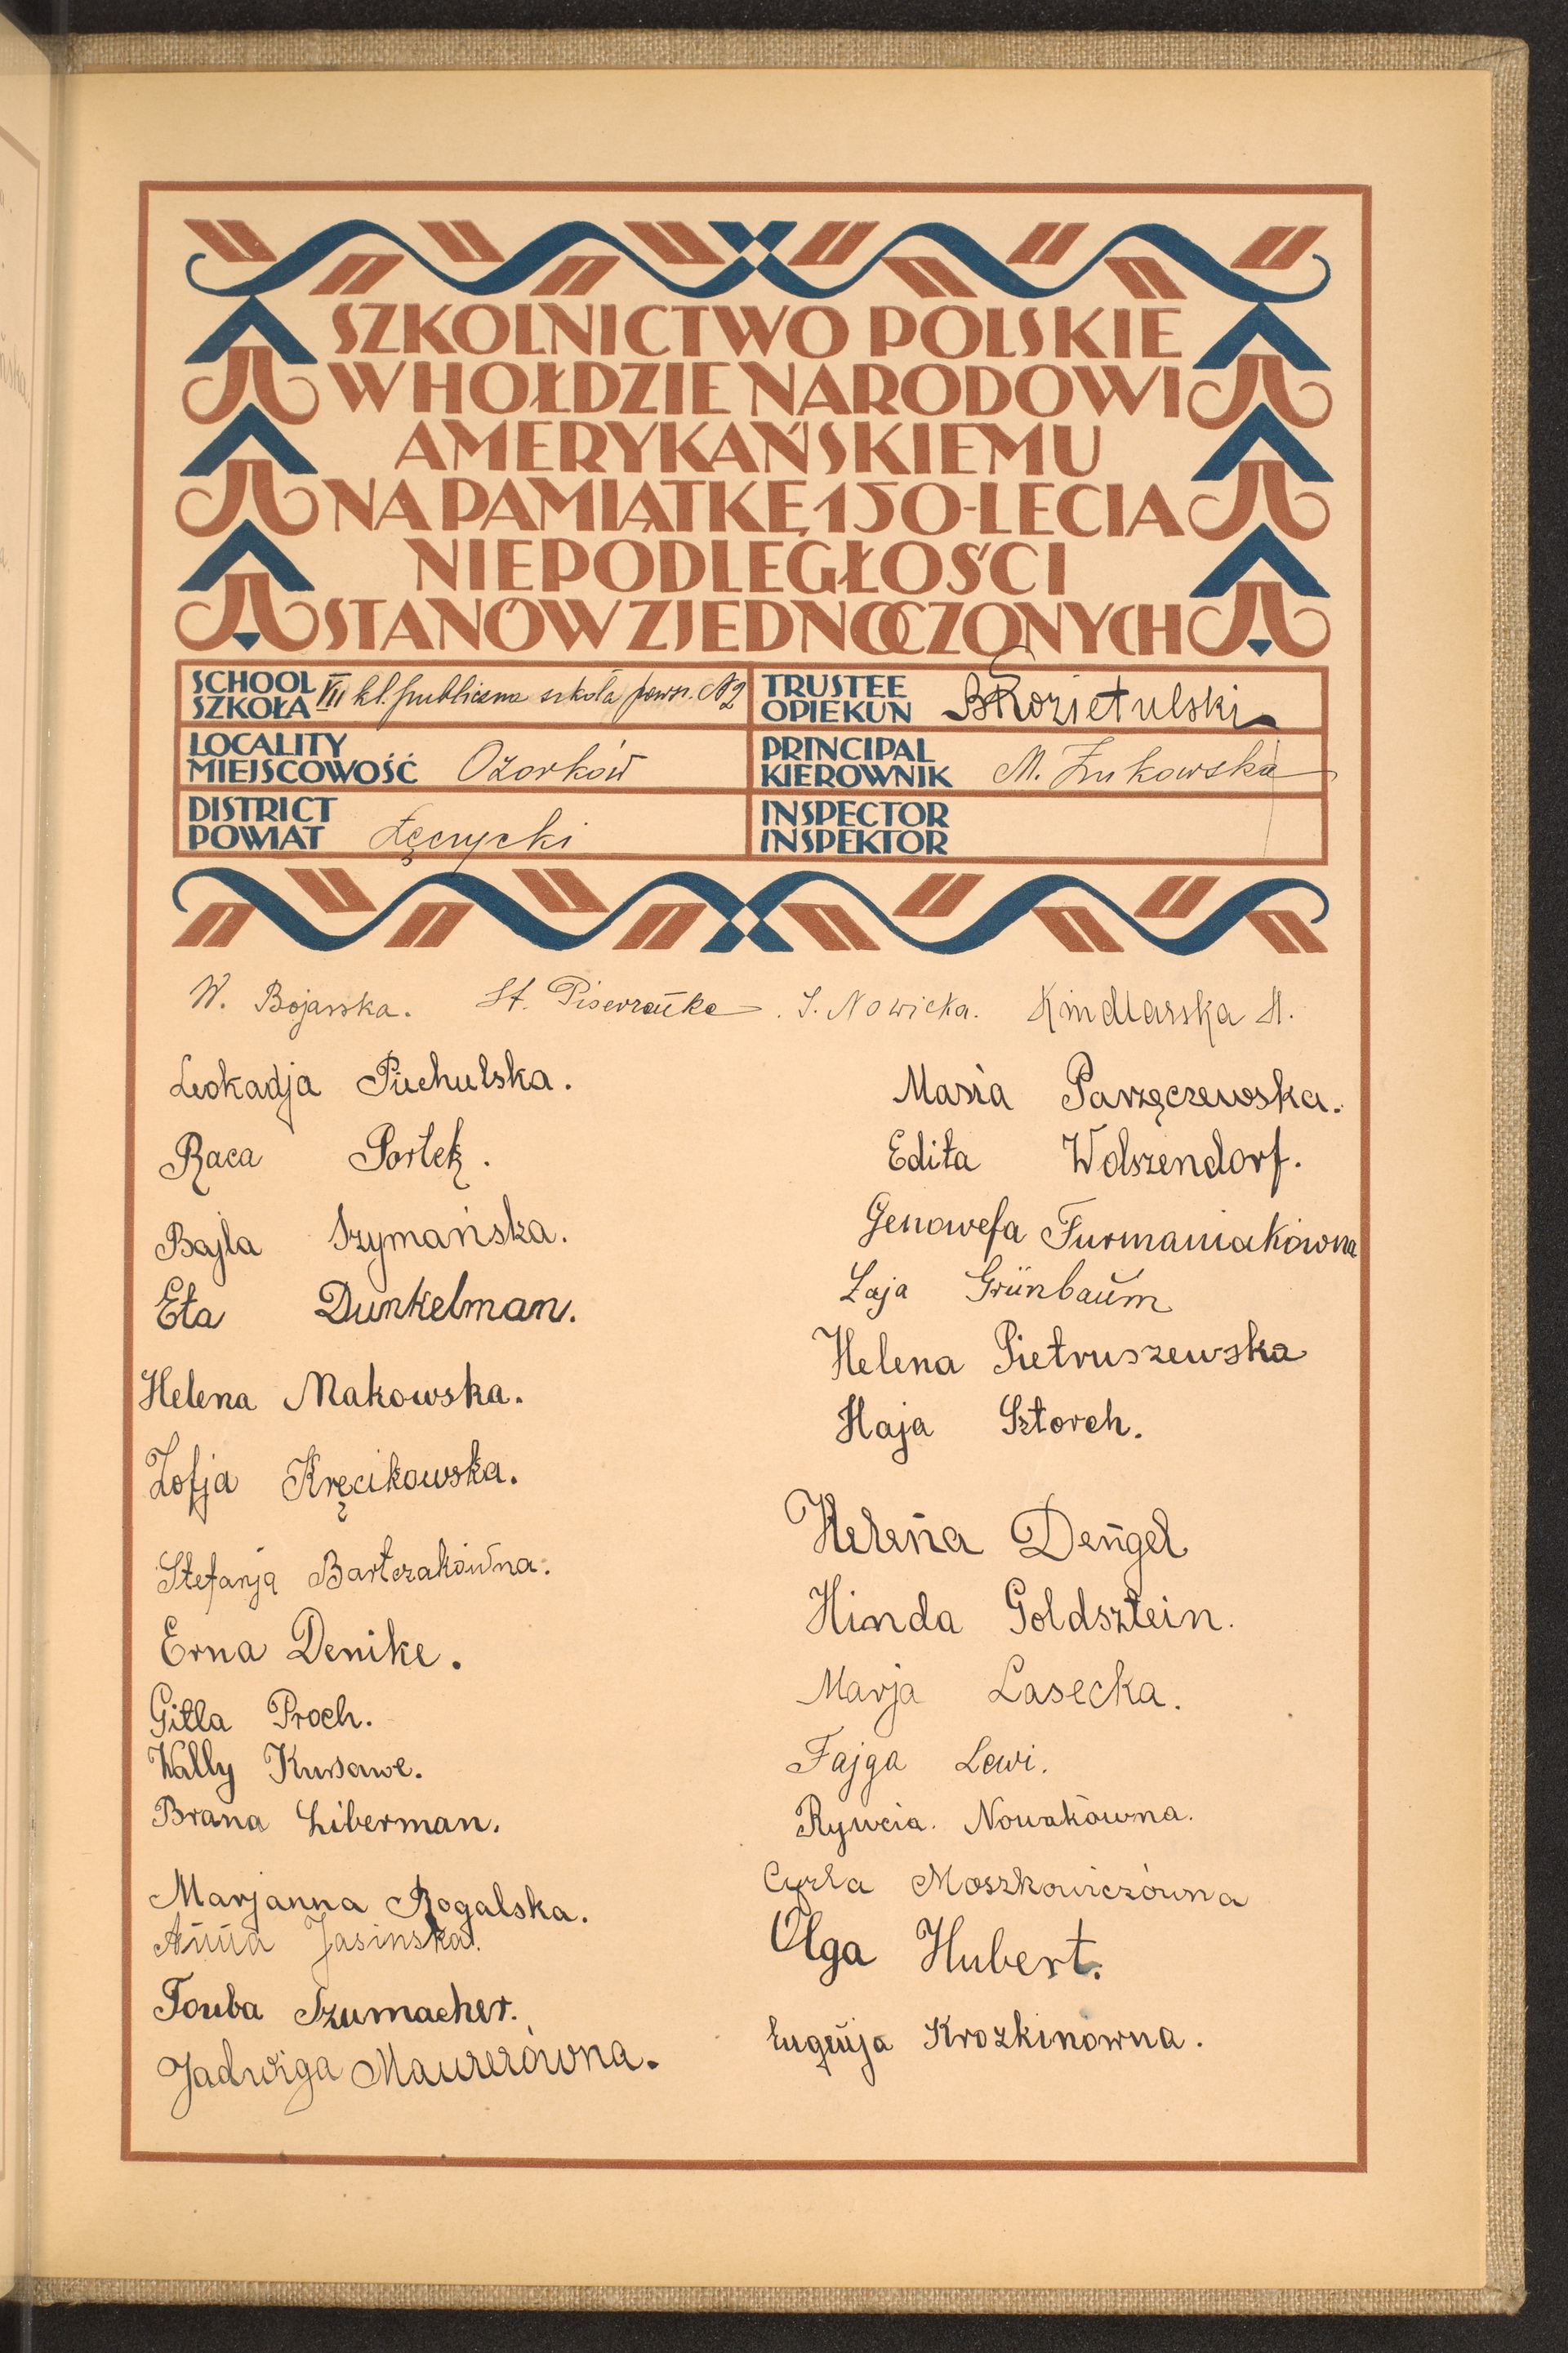 SZKOLNICTWO POLSKIE
W HOŁDZIE NARODOWI
AMERYKAŃSKIEMU
NA PAMIĄTKĘ 150-LECIA
NIEPODLEGŁOŚCI
STANÓW ZJEDNOCZONYCH
SCHOOL
SZKOŁA VII kl. publiczna szkoła powsz. № 2
TRUSTEE
OPIEKUN BKozietulski
LOCALITY
MIEJSCOWOŚĆ Ozorków
PRINCIPAL
KIEROWNIK M. Żukowska
DISTRICT
POWIAT Łęczycki
INSPECTOR
INSPEKTOR
W. Bojarska. St. S. Nowicka. Kindlarska H.
Leokadja Puchulska.
Raca Portek.
Bajla Szymańska.
Eta Dunkelman.
Helena Makowska.
Zofja Kręcikowska.
Stefanja Bartczakówna.
Erna Denike.
Gitla Proch.
Wally
Brana Liberman.
Marjanna Rogalska.
Anna Jasinska.
Touba Szumacher.
Jadwiga Maurerówna.
Maria Parzęczewska.
Edita Wolszendorf.
Genowefa Furmaniakówna
Łaja Grünbaum
Helena Pietruszewska
Haja Sztorch.
Helena Dengel
Hinda Goldsztein.
Marja Lasecka.
Fajga Lewi.
Rywcia. Nowakówna.
Cyrla Moszkowiczówna
Olga Hubert.
Eugenja Krozkinówna.